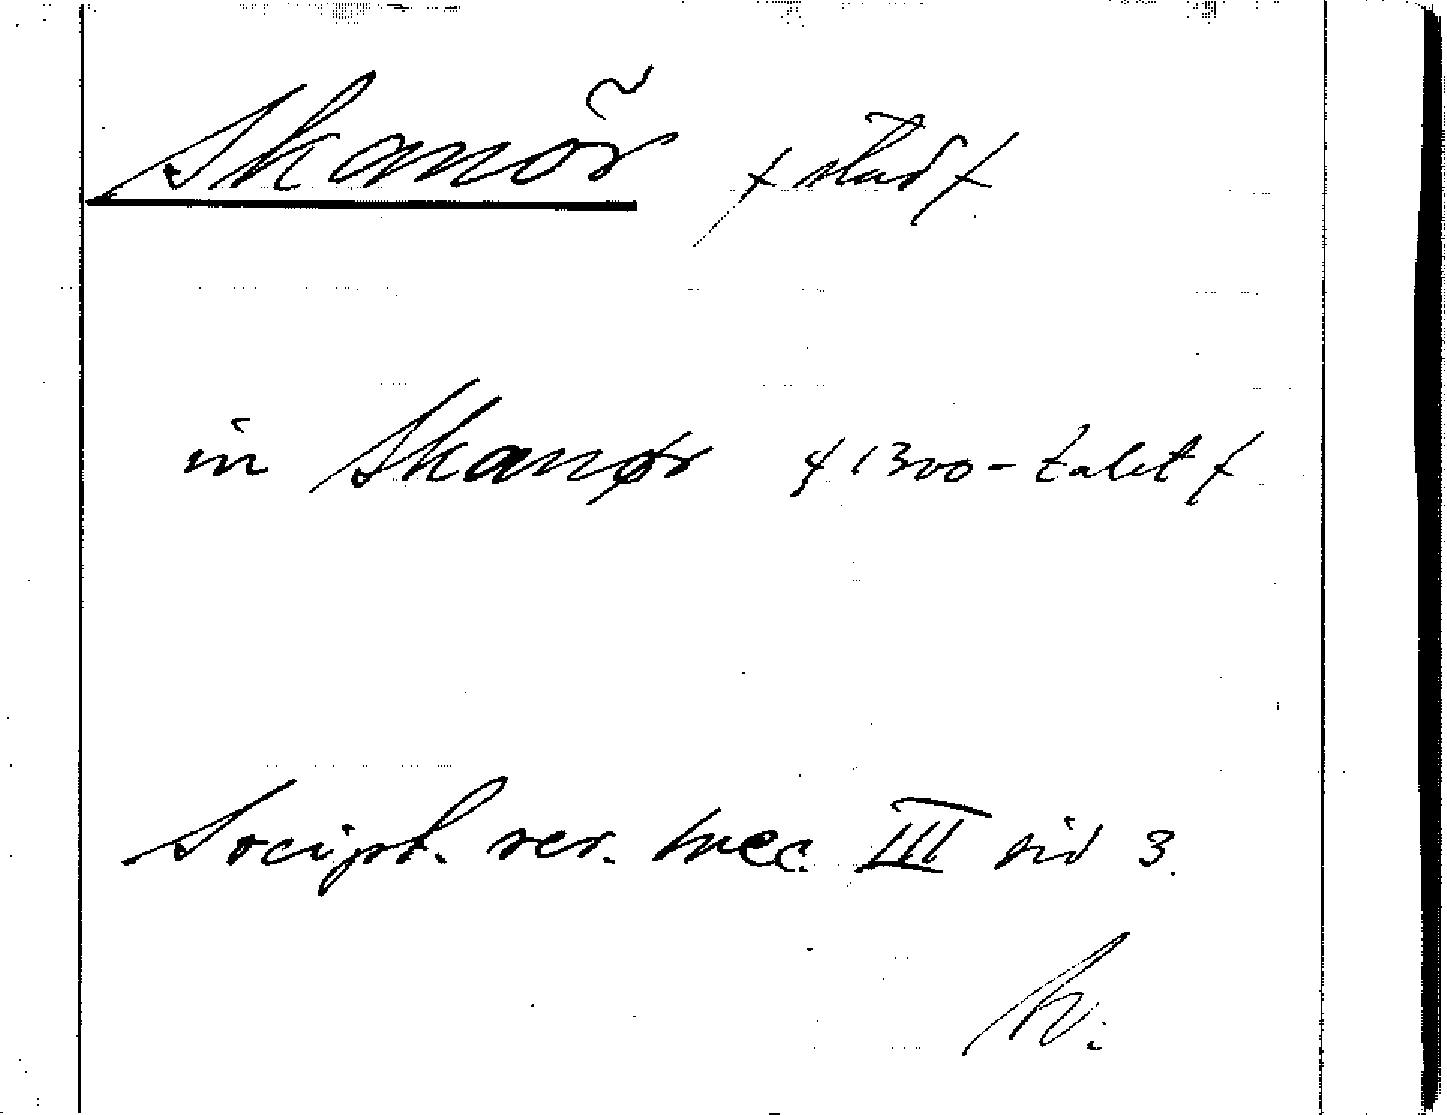 Skanör ɟ stad ɟ
in Skanør ɟ 1300-talet ɟ
Script. rer. suec. III sid 3.